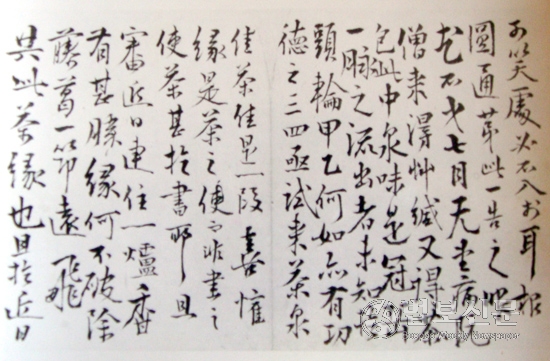 可笑處必不入於耳根
圓通第此一告之也
七月天
僧來得艸緘又得茶
包此中泉味是冠岳
一脈之流出者未知於
頭輪甲乙何如亦有功
德之三四亟試來茶泉
佳茶佳是一段喜懽
緣是茶之使而非書之
使茶甚於書耶且
審近日連住一爐香
有甚勝緣何不破除
藤葛一筇遠飛
共此茶緣也且於近日
웰빙신문